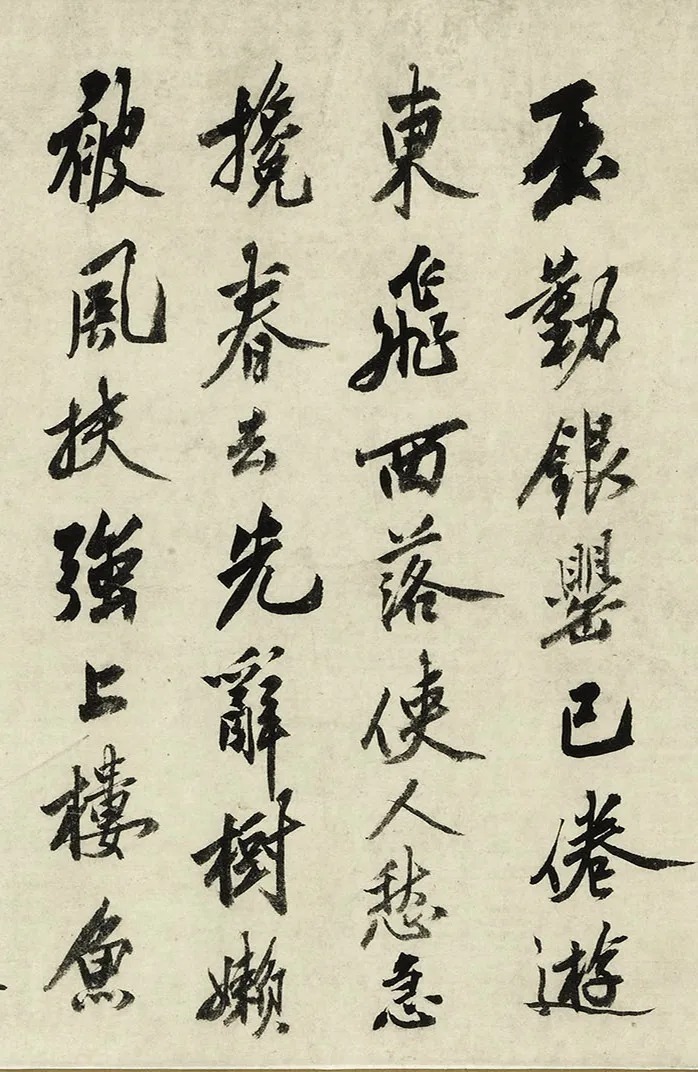 玉勒銀罌已倦遊
東飛西落使人愁急
攙春去先辭樹懶
被風扶強上樓魚